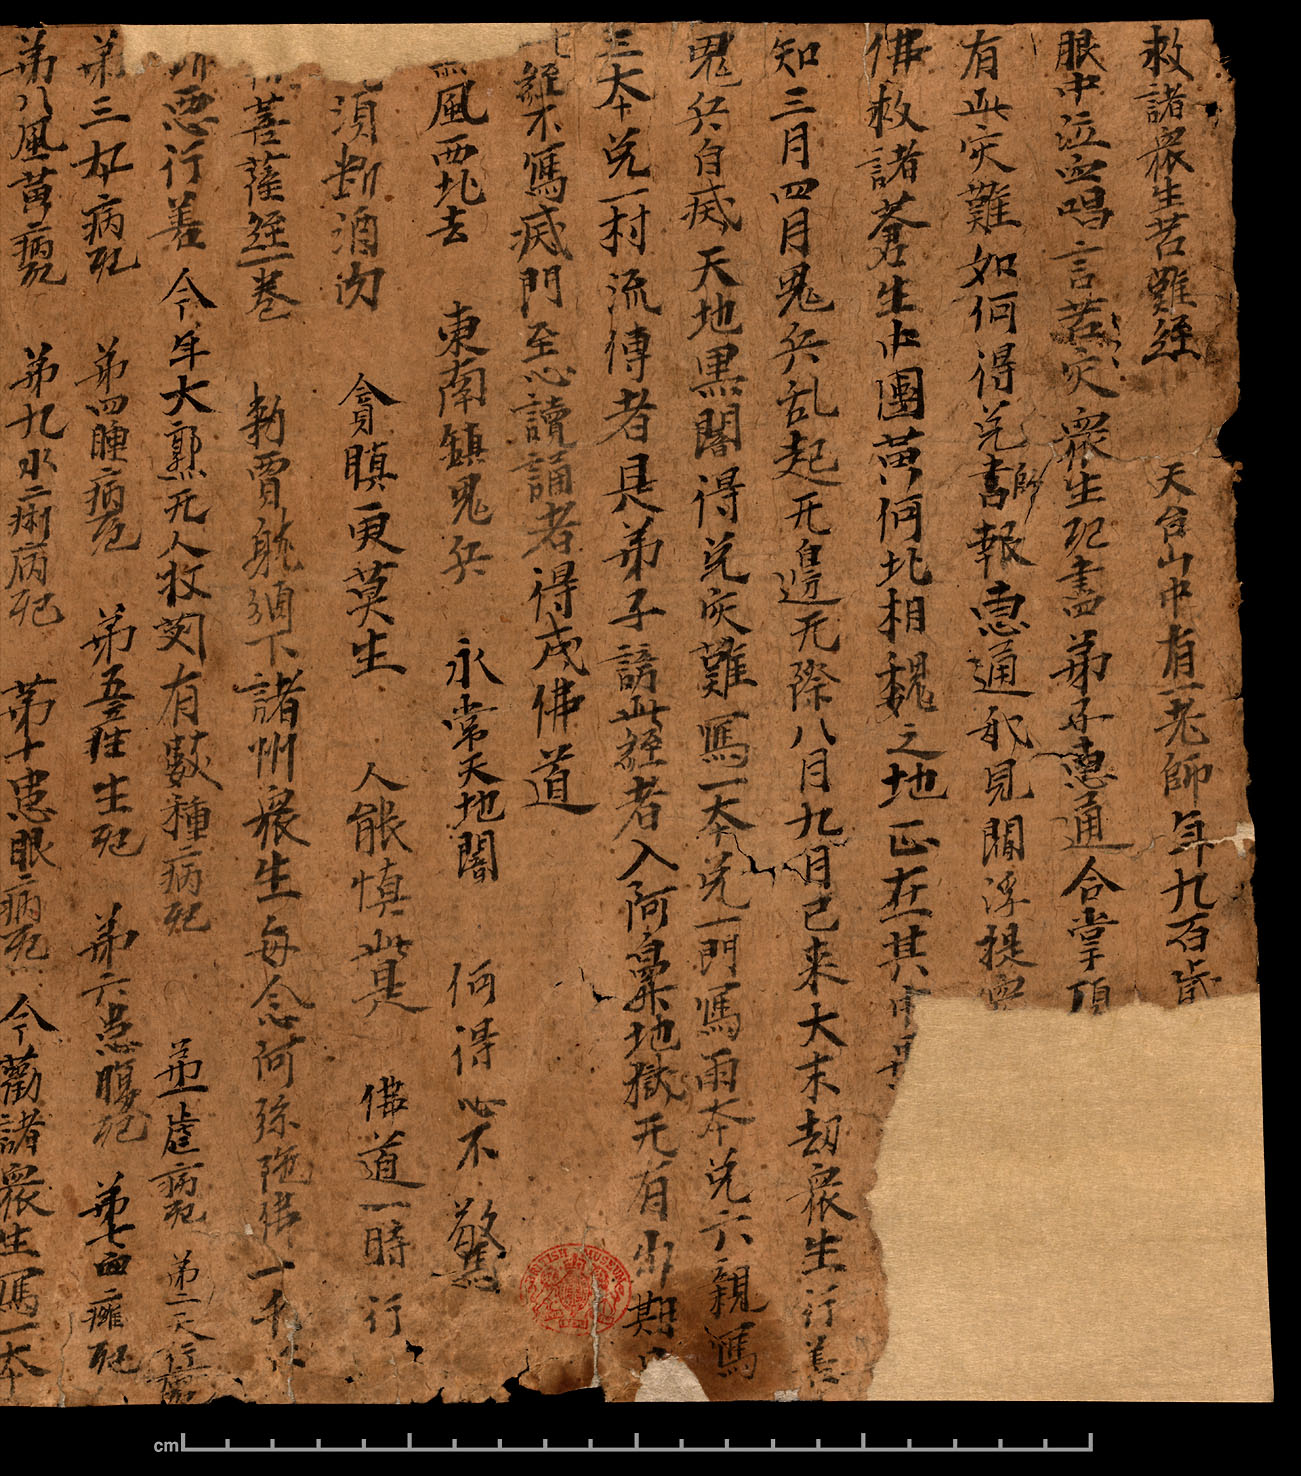 救諸衆生苦難經 天台山中有一老師年九百歲
眼中泣血唱言苦灾衆生死盡弟子惠通合掌頂
有此灾難如何得免師書報惠通耶見閻浮提
佛救諸蒼生中國黃河北相魏之地正在其中
知三月四月鬼兵乱起无邊无際八月九月已來大末劫衆生行善
鬼兵自滅天地黑闇得免灾難寫一本免一門寫兩本免六親寫
三本免一村流傳者是弟子謗此經者入阿鼻地獄无有出期
經不寫滅門至心讀誦者得成佛道
黑風西北去 東南鎮鬼兵 永常天地闇 何得心不驚
須斷酒肉 貪瞋更莫生 人能慎此是 佛道一時行
菩薩經一卷 勑賈躭頒下諸州衆生每念阿弥陁佛一千
惡行善 今年大熟无人收刈有數種病死 弟一虐病死 弟二天行病
弟三卒病死 弟四腫病死 弟五産生死 弟六患腹死 弟七血癰死
弟八風黃病死 弟九水痢病死 弟十患眼病死 今勸諸衆生寫一本
BRITISH MUSEUM
cm